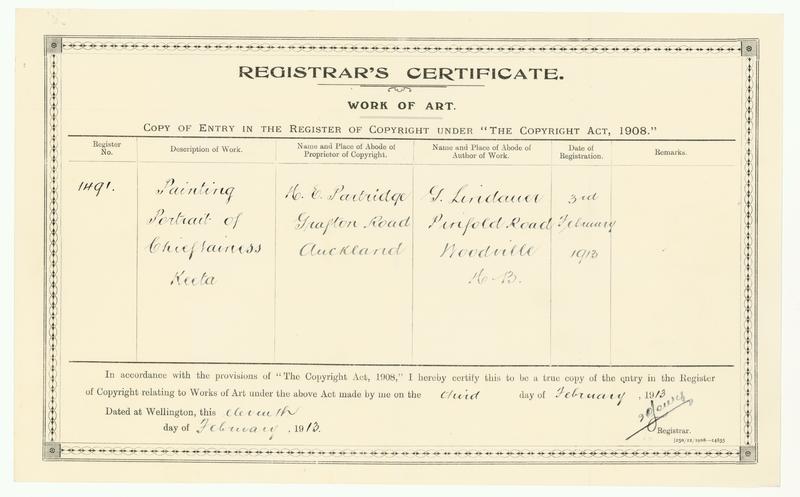 REGISTRAR'S CERTIFICATE.
WORK OF ART.
COPY OF ENTRY IN THE REGISTER OF COPYRIGHT UNDER "THE COPYRIGHT ACT, 1908."
Register No.
Description of Work.
Name and Place of Abode of Proprietor of Copyright.
Name and Place of Abode of Author of Work.
Date of Registration.
Remarks.
1491.
Painting
Portrait of
Chieftainess
Keeta
H. E. Partridge
Grafton Road
Auckland
G. Lindauer
Pinfold Road
Woodville
H-B.
3rd
February
1913
In accordance with the provisions of "The Copyright Act, 1908," I hereby certify this to be a true copy of the entry in the Register
of Copyright relating to Works of Art under the above Act made by me on the third day of February, 1913
Dated at Wellington, this eleventh
day of February, 1913.
Registrar.
[250/12/1908—14855